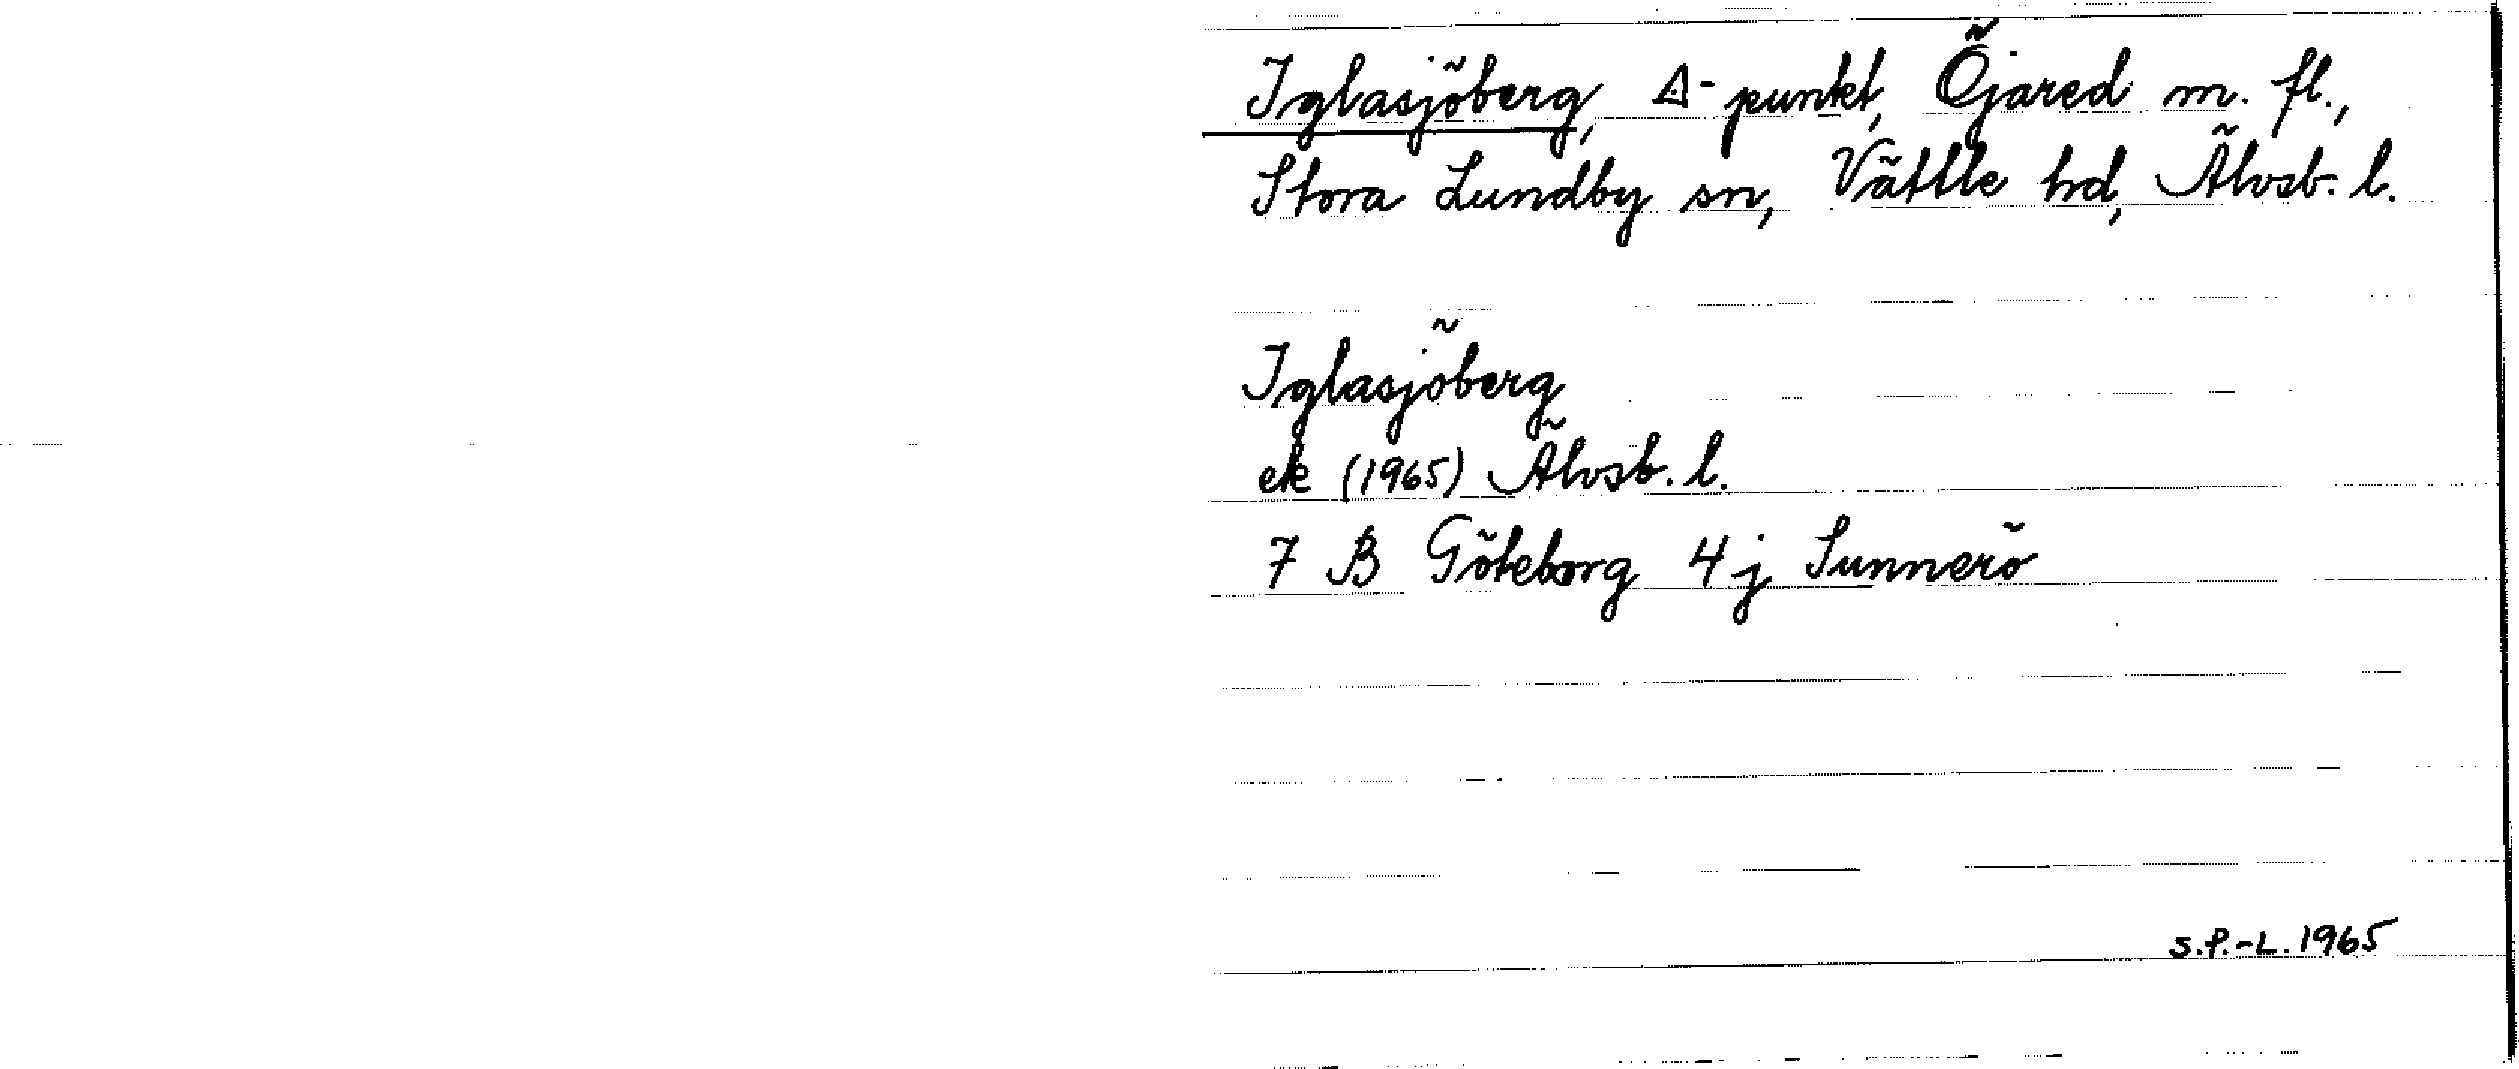 Iglasjöberg, ⚠-punkt, Öjared m. fl.,
Stora Lundby sn, Vättle hd, Älvsb. l.
Iglasjöberg
ek (1965) Älvsb. l.
7 B Göteborg 4 j Sunnerö
S.P.-L. 1965